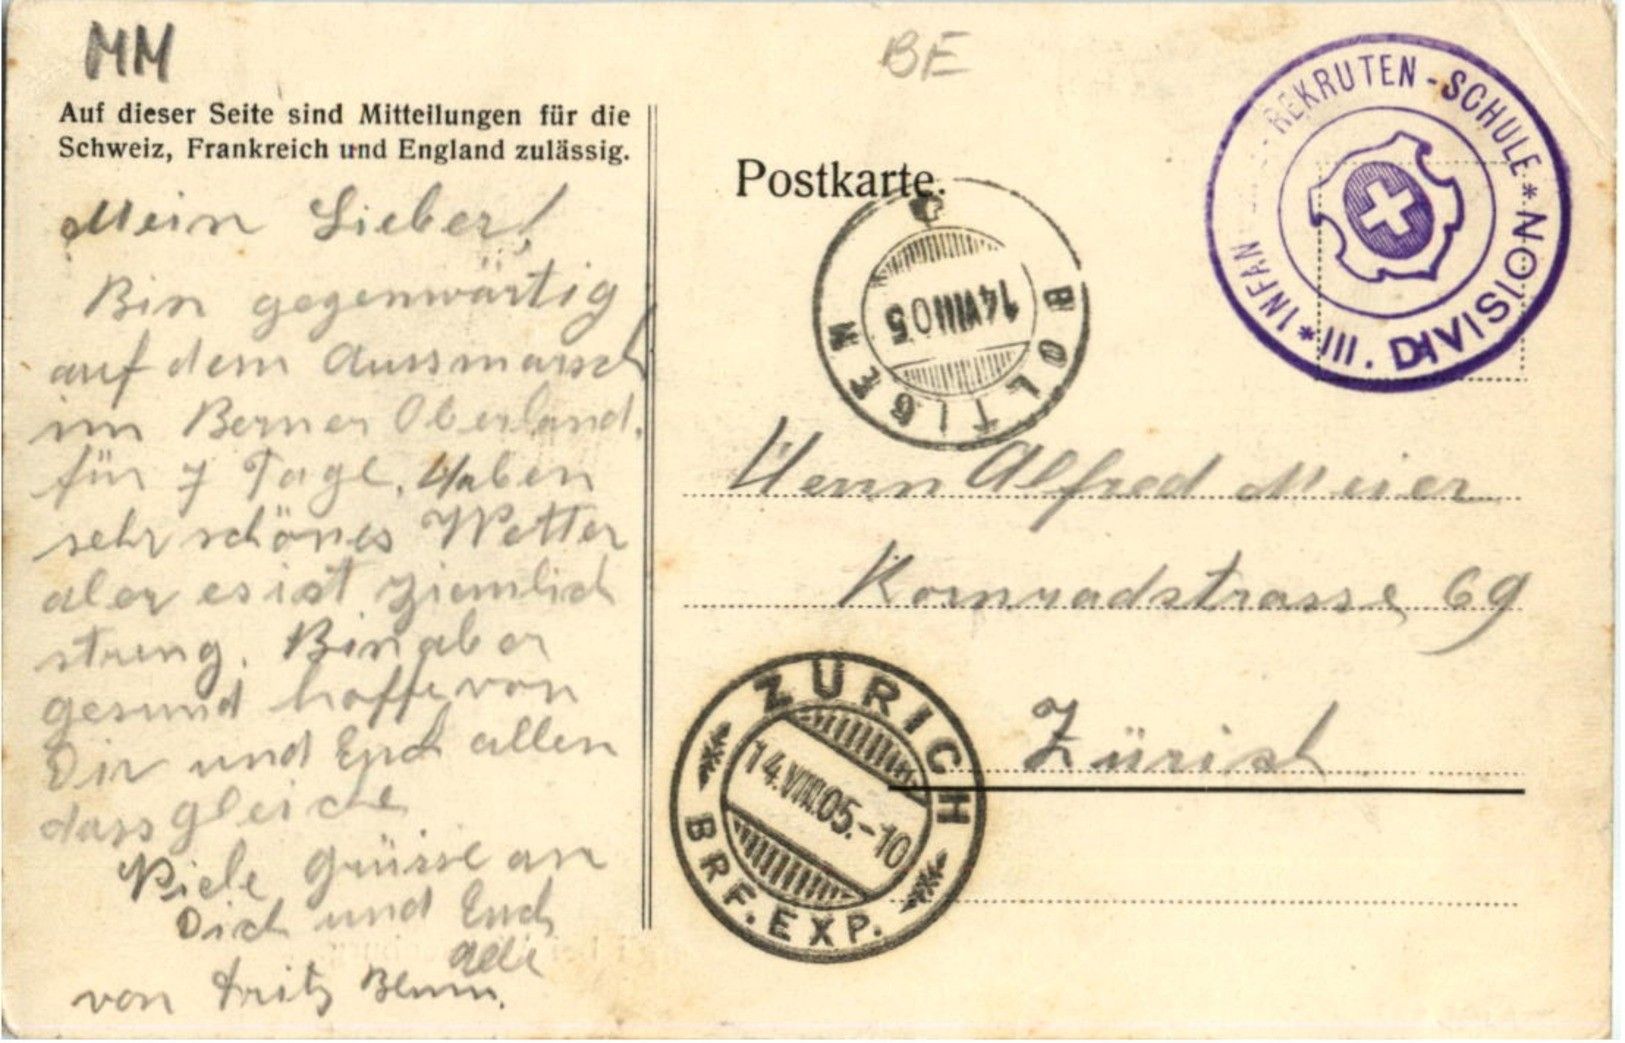 MM
BE
Auf dieser Seite sind Mitteilungen für die
Schweiz, Frankreich und England zulässig.
Mein Lieber!
Bin gegenwärtig
auf dem Aussmarsch
im Berner Oberland.
für 7 Tage. Haben
sehr schönes Wetter
aber es ist ziemlich
streng. Bin aber
gesund hoffe von
Dir und Euch allen
dass gleiche
Viele Grüsse an
Dich und Euch
alle
von Fritz
Postkarte.
BOLTIGEN
14 VIII 05
REKRUTEN-SCHULE
* III. DIVISION *
Herrn Alfred Meier
Konradstrasse 69
Zürich
ZÜRICH
14.VIII.05.-10
BRF. EXP.